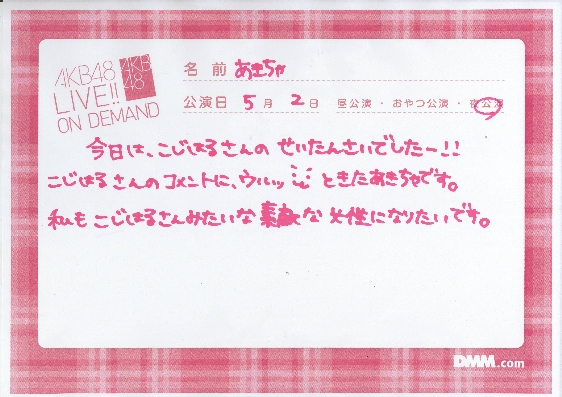 AKB48
LIVE!!
ON DEMAND
AKB
48
名前 あきちゃ
公演日 5月2日 昼公演・おやつ公演・夜公演
今日は、こじはるさんの せいたんさいでしたー!!
こじはるさんのコメントに、ウルッッ ときたあきちゃです。
私も こじはるさんみたいな 素敵な 女性になりたいです。
DMM.com